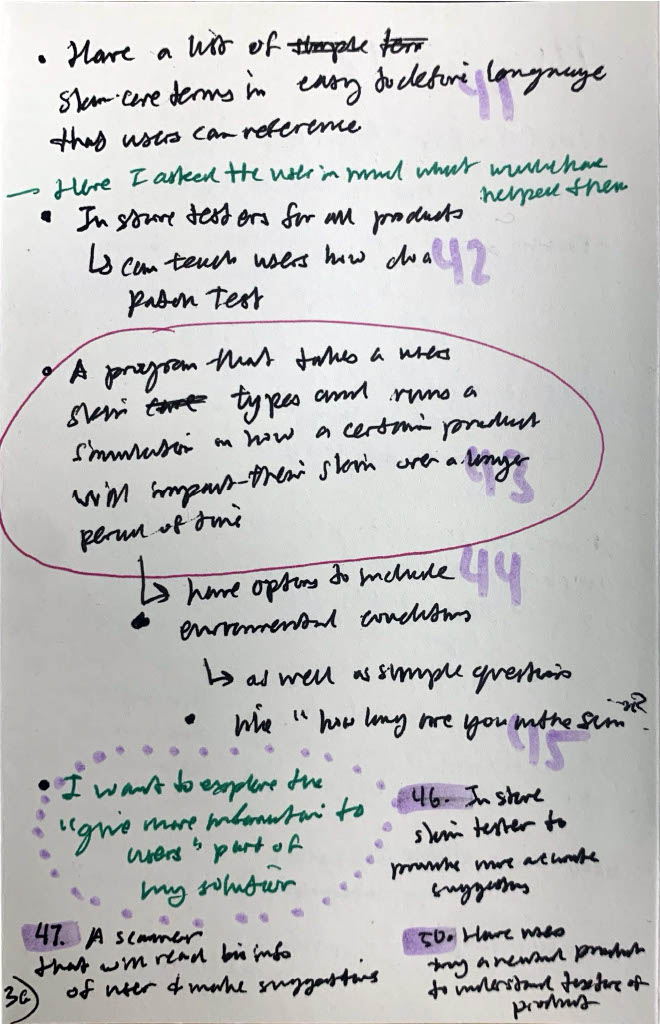 • Have a list of simple term
skin-care terms in easy to define language 41
that users can reference
→ Here I asked the user in mind what would have
helped them
• In store testers for all products
↳ can teach users how do a 42
patch test
• A program that takes a users
skin care types and runs a
simulation on how a certain product
will impact their skin over a longer 43
period of time
↳ have options to include 44
• environmental conditions
↳ as well as simple questions
• like "how long are you in the sun 45
• I want to explore the
"give more information to
users" part of
my solution
46. In store
skin tester to
provide more accurate
suggestions
47. A scanner
that will read bio info
of user & make suggestions
50. Have users
try a neutral product
to understand texture of
product